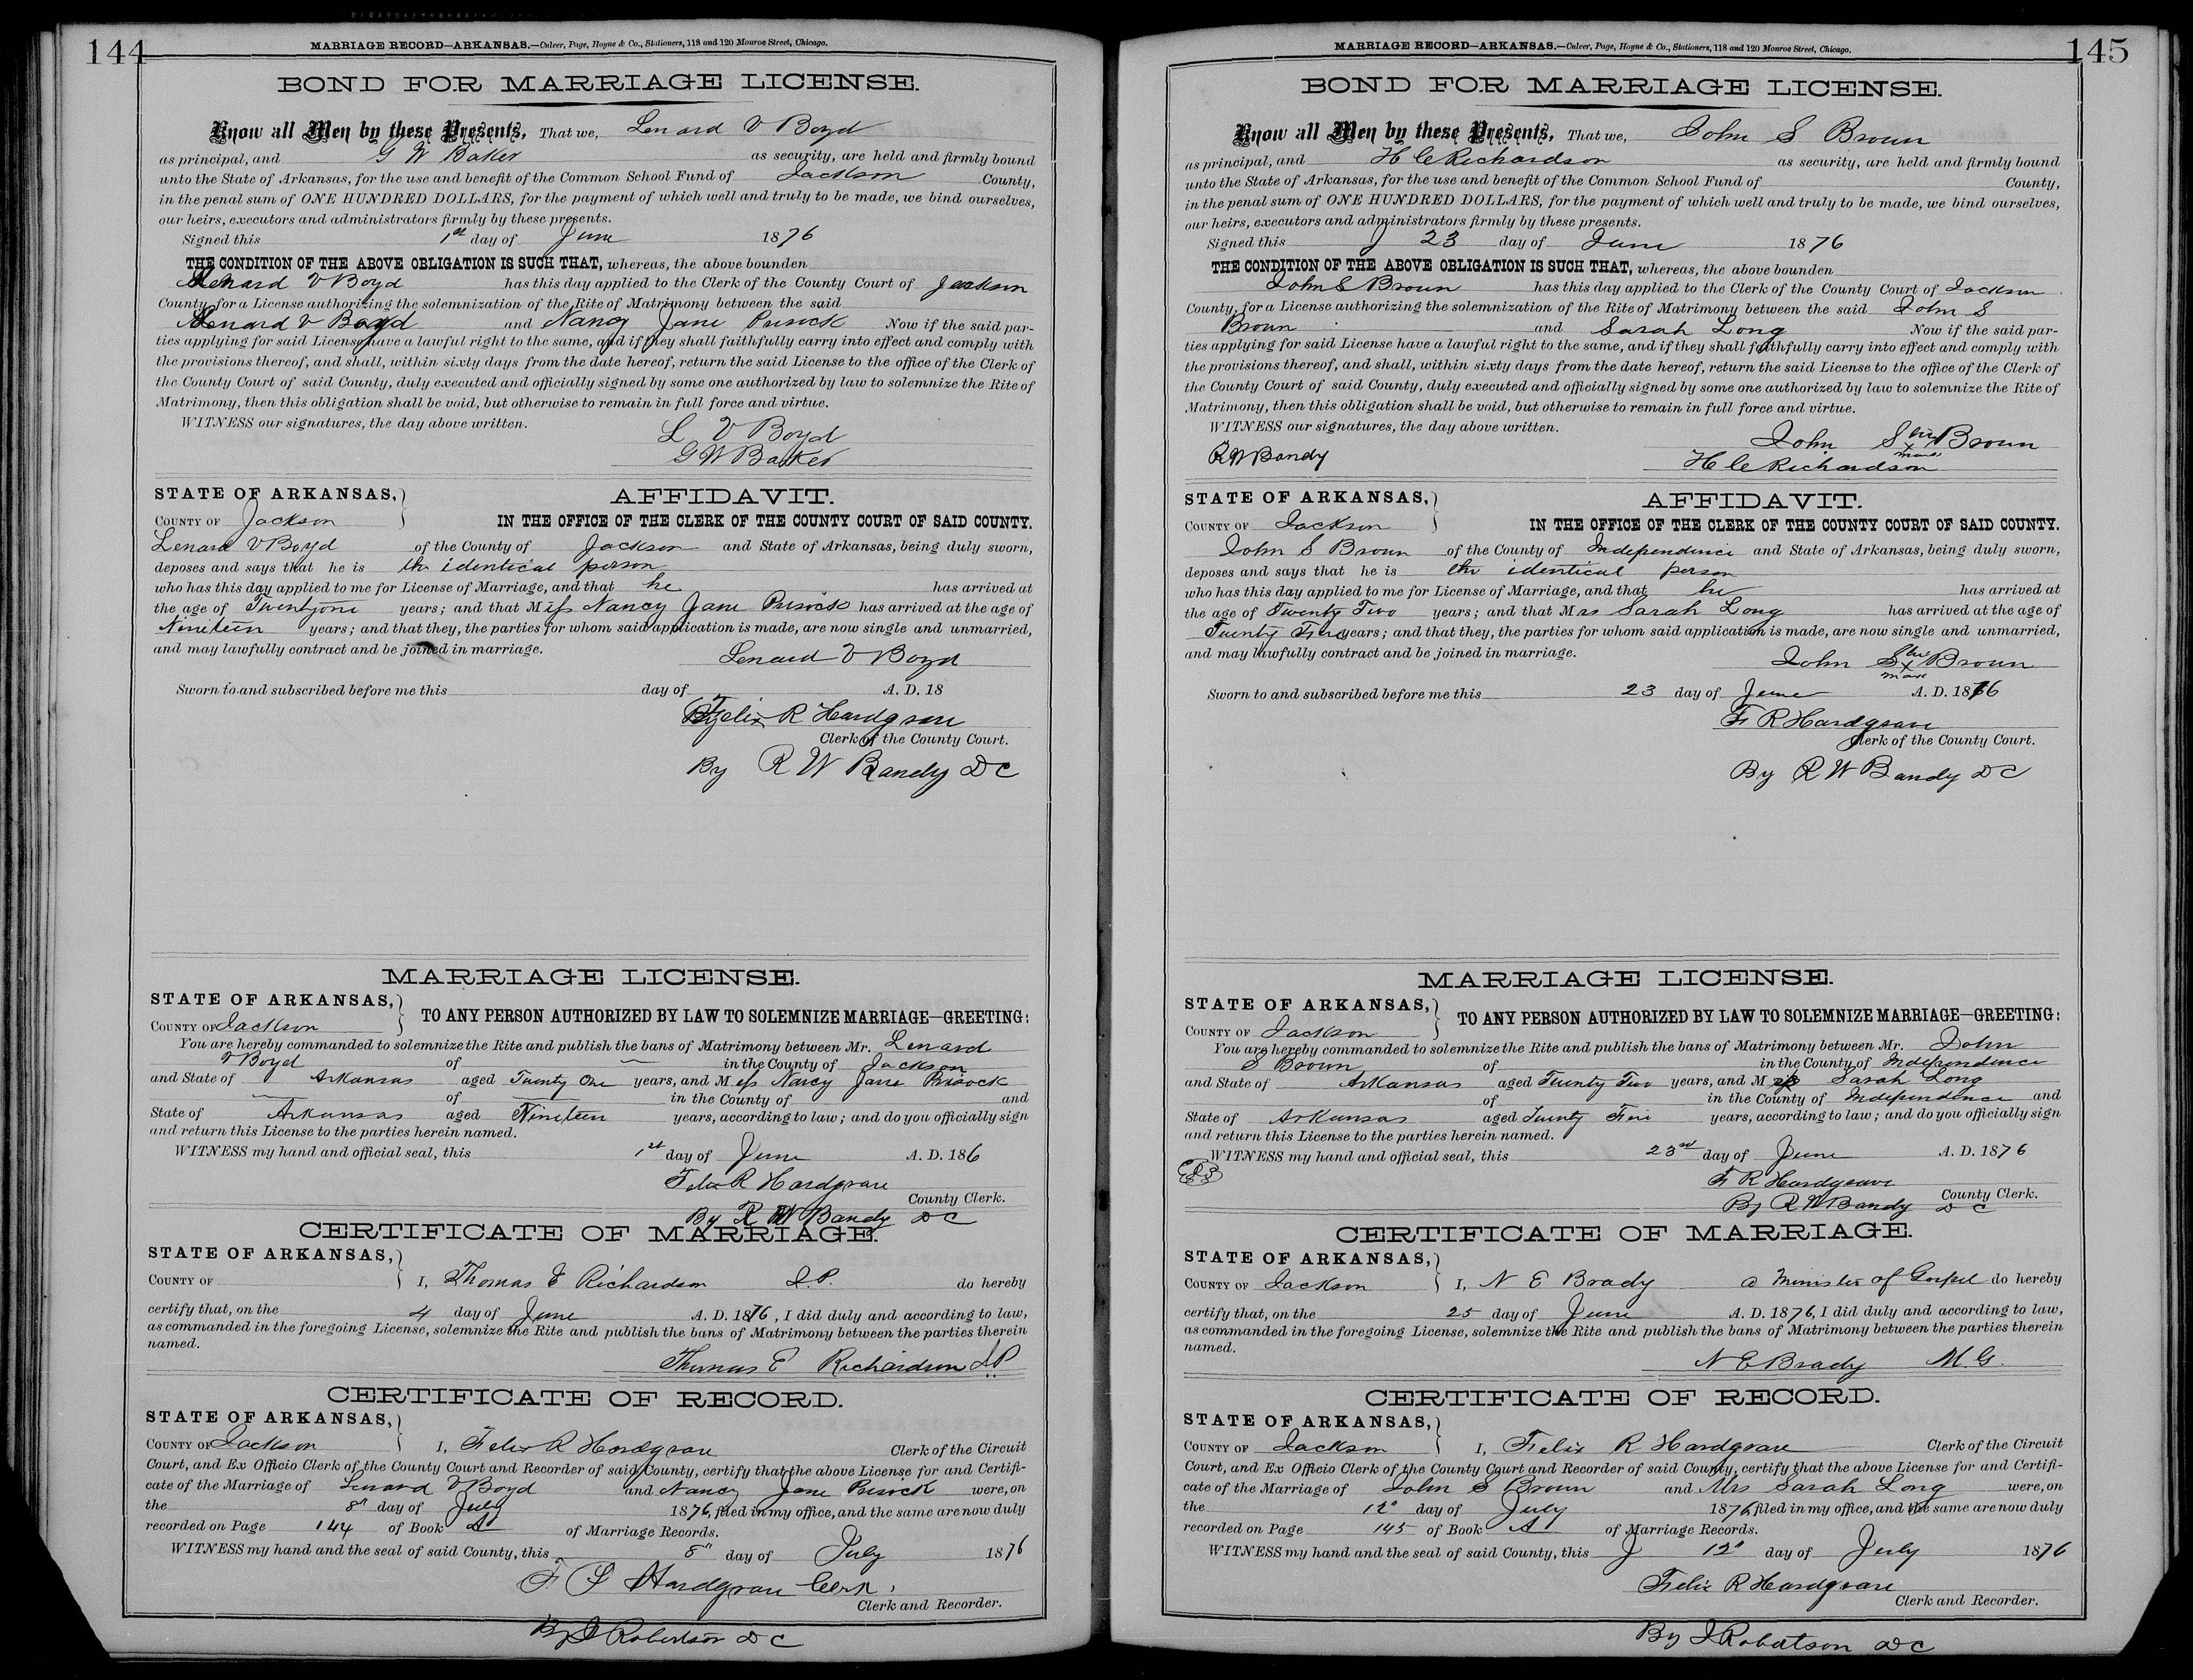 144
MARRIAGE RECORD—ARKANSAS.—Culver, Page, Hoyne & Co., Stationers, 118 and 120 Monroe Street, Chicago.
BOND FOR MARRIAGE LICENSE.
Know all Men by these Presents, That we, Lenard V Boyd
as principal, and G W Baker as security, are held and firmly bound
unto the State of Arkansas, for the use and benefit of the Common School Fund of Jackson County,
in the penal sum of ONE HUNDRED DOLLARS, for the payment of which well and truly to be made, we bind ourselves,
our heirs, executors and administrators firmly by these presents.
Signed this 1st day of June 1876
THE CONDITION OF THE ABOVE OBLIGATION IS SUCH THAT, whereas, the above bounden
Lenard V Boyd has this day applied to the Clerk of the County Court of Jackson
County, for a License authorizing the solemnization of the Rite of Matrimony between the said
Lenard V Boyd and Nancy Jane Now if the said par-
ties applying for said License have a lawful right to the same, and if they shall faithfully carry into effect and comply with
the provisions thereof, and shall, within sixty days from the date hereof, return the said License to the office of the Clerk of
the County Court of said County, duly executed and officially signed by some one authorized by law to solemnize the Rite of
Matrimony, then this obligation shall be void, but otherwise to remain in full force and virtue.
WITNESS our signatures, the day above written.
L V Boyd
G W Baker
STATE OF ARKANSAS, AFFIDAVIT.
COUNTY OF Jackson IN THE OFFICE OF THE CLERK OF THE COUNTY COURT OF SAID COUNTY.
Lenard V Boyd of the County of Jackson and State of Arkansas, being duly sworn,
deposes and says that he is the identical person
who has this day applied to me for License of Marriage, and that he has arrived at
the age of Twentyone years; and that Miss Nancy Jane has arrived at the age of
Nineteen years; and that they, the parties for whom said application is made, are now single and unmarried,
and may lawfully contract and be joined in marriage.
Lenard V Boyd
Sworn to and subscribed before me this day of A. D. 18
Felix R Hardgrave
Clerk of the County Court.
By R W Bandy D C
MARRIAGE LICENSE.
STATE OF ARKANSAS,
COUNTY OF Jackson TO ANY PERSON AUTHORIZED BY LAW TO SOLEMNIZE MARRIAGE—GREETING:
You are hereby commanded to solemnize the Rite and publish the bans of Matrimony between Mr. Lenard
V Boyd of in the County of Jackson
and State of Arkansas aged Twenty One years, and Miss Nancy Jane
of in the County of and
State of Arkansas aged Nineteen years, according to law; and do you officially sign
and return this License to the parties herein named.
WITNESS my hand and official seal, this 1st day of June A. D. 186
Felix R Hardgrave
County Clerk.
By R W Bandy D C
CERTIFICATE OF MARRIAGE.
STATE OF ARKANSAS,
COUNTY OF I, Thomas E Richardson J.P. do hereby
certify that, on the 4 day of June A. D. 1876, I did duly and according to law,
as commanded in the foregoing License, solemnize the Rite and publish the bans of Matrimony between the parties therein
named.
Thomas E Richardson J.P.
CERTIFICATE OF RECORD.
STATE OF ARKANSAS,
COUNTY OF Jackson I, Felix R Hardgrave Clerk of the Circuit
Court, and Ex Officio Clerk of the County Court and Recorder of said County, certify that the above License for and Certifi-
cate of the Marriage of Lenard V Boyd and Nancy Jane were, on
the 8" day of July 1876, filed in my office, and the same are now duly
recorded on Page 144 of Book A of Marriage Records.
WITNESS my hand and the seal of said County, this 8" day of July 1876
Hardgrave Clerk
Clerk and Recorder.
By J Robertson D C
145
MARRIAGE RECORD—ARKANSAS.—Culver, Page, Hoyne & Co., Stationers, 118 and 120 Monroe Street, Chicago.
BOND FOR MARRIAGE LICENSE.
Know all Men by these Presents, That we, John S Broun
as principal, and H C Richardson as security, are held and firmly bound
unto the State of Arkansas, for the use and benefit of the Common School Fund of County,
in the penal sum of ONE HUNDRED DOLLARS, for the payment of which well and truly to be made, we bind ourselves,
our heirs, executors and administrators firmly by these presents.
Signed this 23 day of June 1876
THE CONDITION OF THE ABOVE OBLIGATION IS SUCH THAT, whereas, the above bounden
John S Broun has this day applied to the Clerk of the County Court of Jackson
County, for a License authorizing the solemnization of the Rite of Matrimony between the said John S
Broun and Sarah Long Now if the said par-
ties applying for said License have a lawful right to the same, and if they shall faithfully carry into effect and comply with
the provisions thereof, and shall, within sixty days from the date hereof, return the said License to the office of the Clerk of
the County Court of said County, duly executed and officially signed by some one authorized by law to solemnize the Rite of
Matrimony, then this obligation shall be void, but otherwise to remain in full force and virtue.
WITNESS our signatures, the day above written.
John S his x mark Broun
R W Bandy H C Richardson
STATE OF ARKANSAS, AFFIDAVIT.
COUNTY OF Jackson IN THE OFFICE OF THE CLERK OF THE COUNTY COURT OF SAID COUNTY.
John S Broun of the County of Independence and State of Arkansas, being duly sworn,
deposes and says that he is the identical person
who has this day applied to me for License of Marriage, and that he has arrived at
the age of Twenty Two years; and that Mrs Sarah Long has arrived at the age of
Twenty Five years; and that they, the parties for whom said application is made, are now single and unmarried,
and may lawfully contract and be joined in marriage.
John S his x mark Broun
Sworn to and subscribed before me this 23 day of June A. D. 1876
F R Hardgrave
Clerk of the County Court.
By R W Bandy D C
MARRIAGE LICENSE.
STATE OF ARKANSAS,
COUNTY OF Jackson TO ANY PERSON AUTHORIZED BY LAW TO SOLEMNIZE MARRIAGE—GREETING:
You are hereby commanded to solemnize the Rite and publish the bans of Matrimony between Mr. John
S Broun of in the County of Independence
and State of Arkansas aged Twenty Two years, and M Sarah Long
of in the County of Independence and
State of Arkansas aged Twenty Five years, according to law; and do you officially sign
and return this License to the parties herein named.
WITNESS my hand and official seal, this 23rd day of June A. D. 1876
F R Hardgrave
County Clerk.
By R W Bandy D C
CERTIFICATE OF MARRIAGE.
STATE OF ARKANSAS,
COUNTY OF Jackson I, N E Brady a Minister of Gospel do hereby
certify that, on the 25 day of June A. D. 1876, I did duly and according to law,
as commanded in the foregoing License, solemnize the Rite and publish the bans of Matrimony between the parties therein
named.
N E Brady M.G.
CERTIFICATE OF RECORD.
STATE OF ARKANSAS,
COUNTY OF Jackson I, Felix R Hardgrave Clerk of the Circuit
Court, and Ex Officio Clerk of the County Court and Recorder of said County, certify that the above License for and Certifi-
cate of the Marriage of John S Broun and Mrs Sarah Long were, on
the 12" day of July 1876, filed in my office, and the same are now duly
recorded on Page 145 of Book A of Marriage Records.
WITNESS my hand and the seal of said County, this 12" day of July 1876
Felix R Hardgrave
Clerk and Recorder.
By J Robertson D C